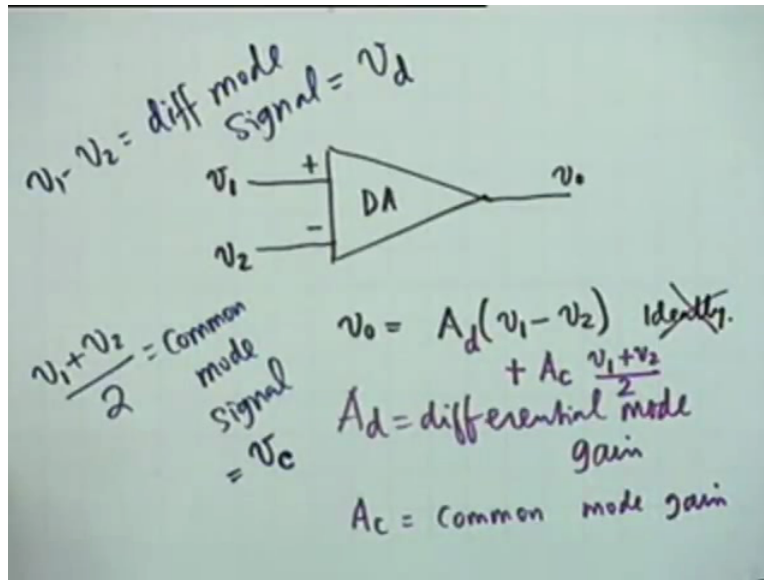 v₁ - v₂ = diff mode
signal = v_d
v₁ +
DA
v₀
v₂ -
(v₁ + v₂)/2 = Common
mode
signal
= v_c
v₀ = A_d(v₁ - v₂) Ideally.
+ A_c (v₁ + v₂)/2
A_d = differential mode
gain
A_c = Common mode gain